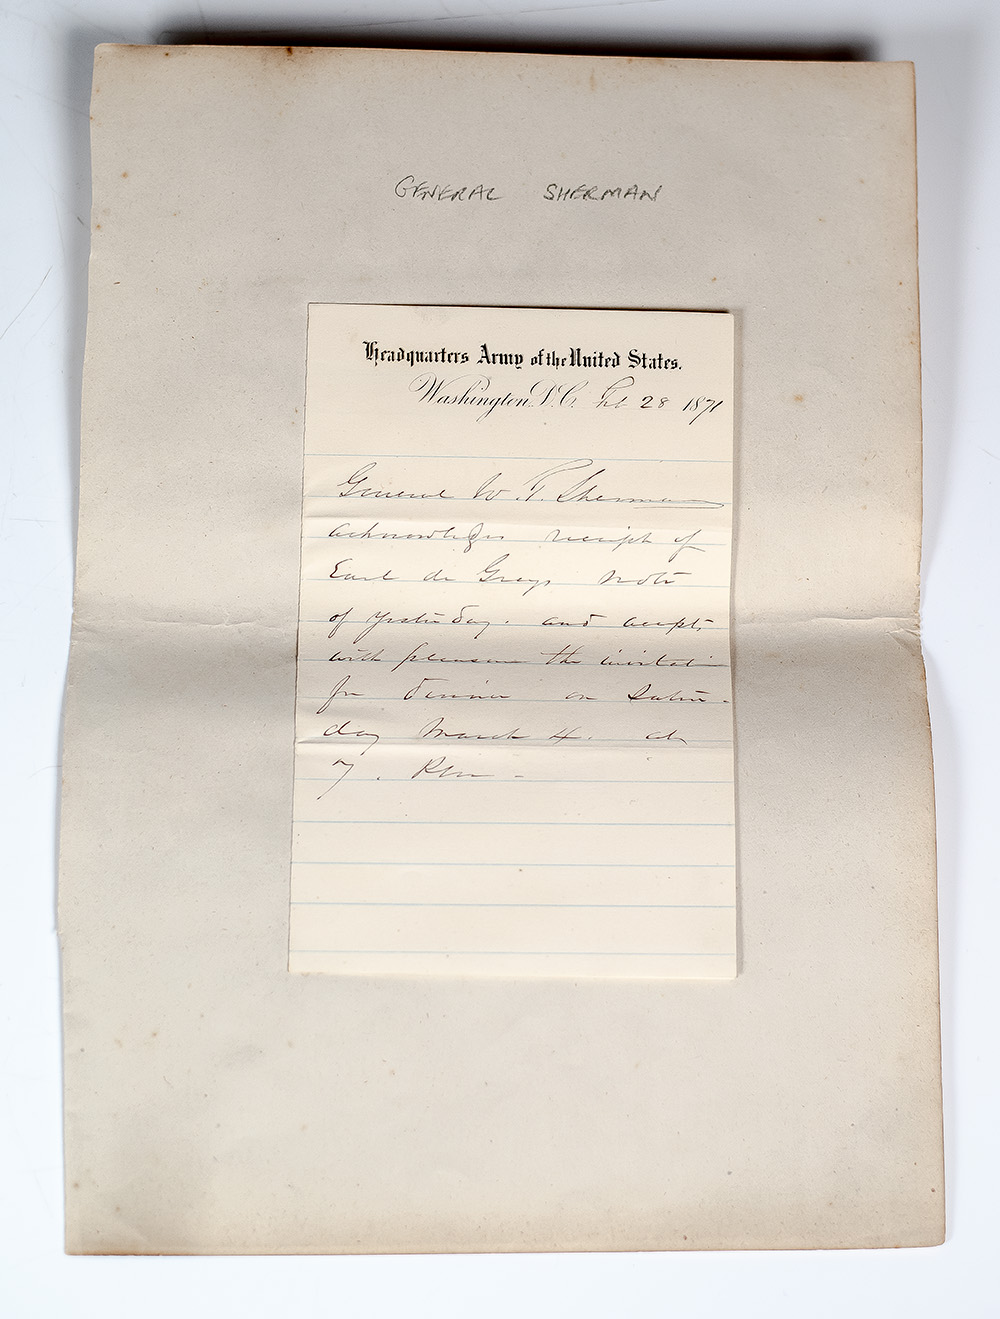 GENERAL SHERMAN
Headquarters Army of the United States.
Washington, D.C. Feb 28 1871
General W. T. Sherman
acknowledges receipt of
Earl de Greys note
of yesterday. and accepts
with pleasure the invitation
for dinner on Satur-
day March 4. at
7. P.m.